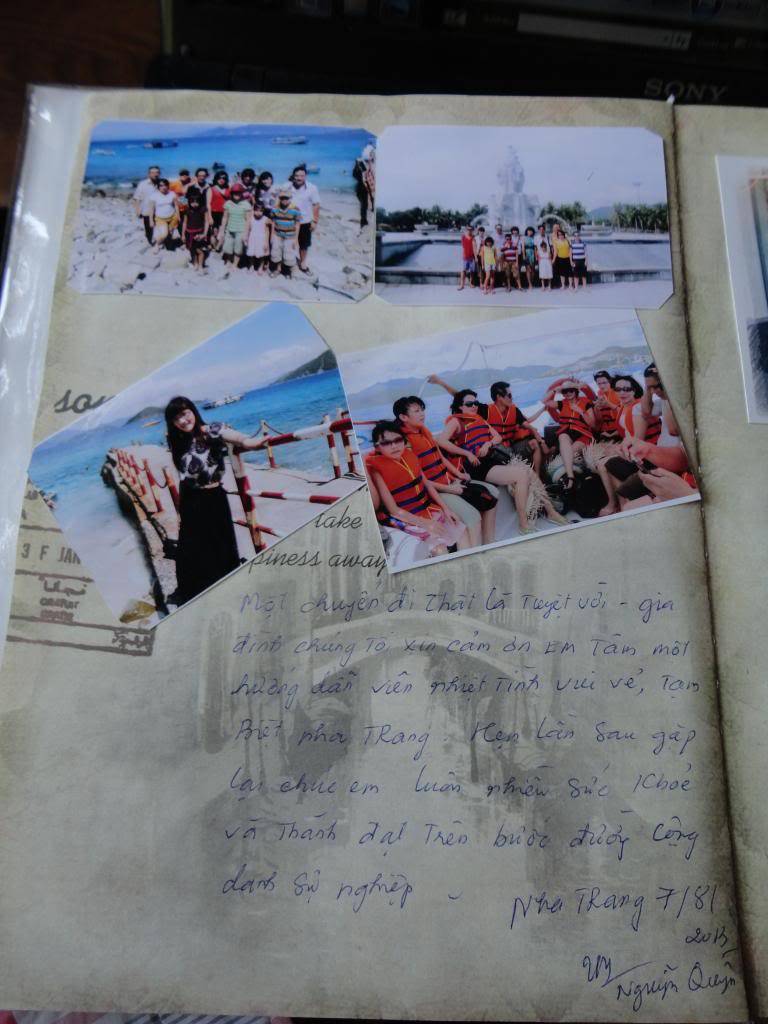 SONY
take
piness away
3 F JAN
Một chuyến đi thật là tuyệt vời - gia
đình chúng tôi xin cảm ơn Em Tâm một
hướng dẫn viên nhiệt tình vui vẻ, Tạm
Biệt nha TRang. Hẹn lần sau gặp
lại chúc em luôn nhiều sức khoẻ
và Thành đạt Trên bước đường công
danh sự nghiệp
Nha TRang 7/8/
2013
Nguyễn Quyền